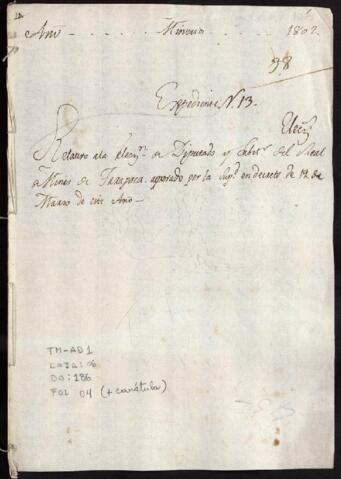 Año Mineria 1802.
98
Expediente N. 13.
Relativo ala Elecn. de Diputado y del Real
de Minas de Tarapaca. aprovado por la Supd. en decreto de 12 de
Marzo de este Año
TM-AD1
CAJA: 06
DO: 186
FOL 04 (+ carátula)